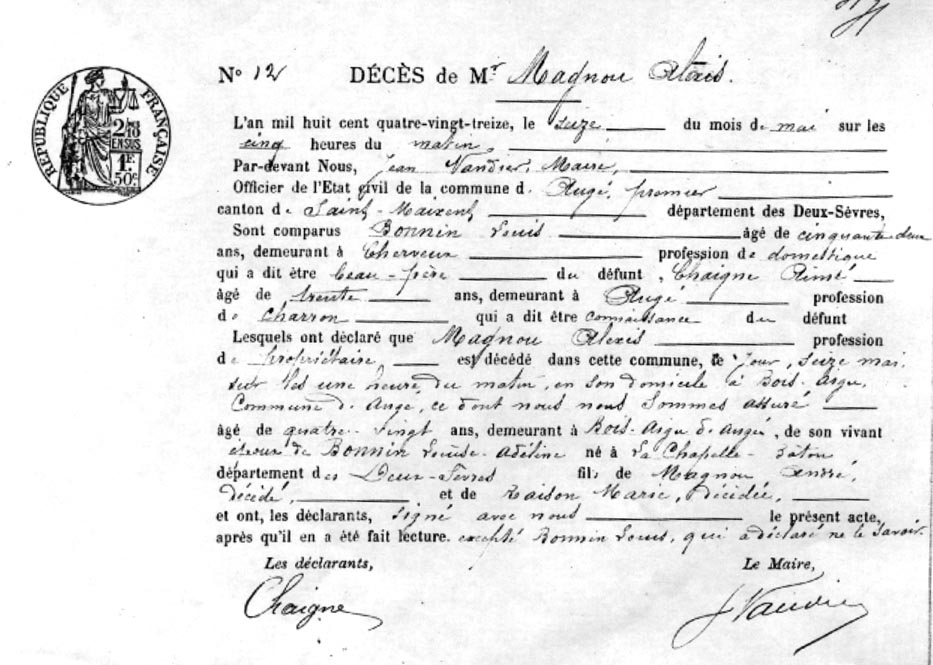 RÉPUBLIQUE FRANÇAISE
2/10 48
EN SUS
1F
50c
No 12 DÉCÈS de Mr Magnou Alexis.
L'an mil huit cent quatre-vingt-treize, le seize du mois de mai sur les
cinq heures du matin,
Par-devant Nous, Jean Vandier, Maire,
Officier de l'Etat civil de la commune d' Augé, premier
canton de Saint-Maixent département des Deux-Sèvres,
Sont comparus Bonnin Louis âgé de cinquante deux
ans, demeurant à Cherveux profession de domestique
qui a dit être beau-père du défunt, Chaigne Aimé
âgé de trente ans, demeurant à Augé profession
de Charron qui a dit être connaissance du défunt
Lesquels ont déclaré que Magnou Alexis profession
de propriétaire, est décédé dans cette commune, le jour, seize mai,
sur les une heure du matin, en son domicile à Bois-Argu,
Commune d' Augé, ce dont nous nous sommes assuré
âgé de quatre-vingt ans, demeurant à Bois-Argu d' Augé, de son vivant
époux de Bonnin Louise-Adéline né à La Chapelle-Bâton
département des Deux-Sèvres fils de Magnou André,
décédé, et de Raison Marie, décédée,
et ont, les déclarants, signé avec nous le présent acte,
après qu'il en a été fait lecture. excepté Bonnin Louis, qui a déclaré ne le savoir.
Les déclarants, Le Maire,
Chaigne J Vandier